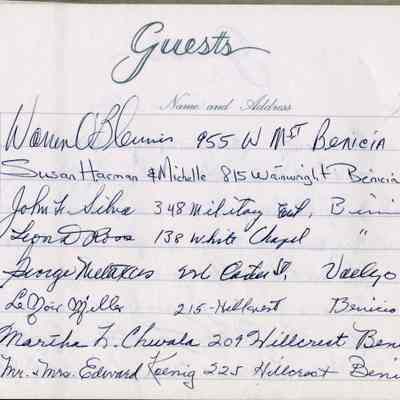 Guests
Name and Address
Warren O'B 955 W M ST Benicia
Susan Harman & Michelle 815 Wainwright Benicia
John L. Silva 348 Military East, Beni
Leon D Ross 138 White Chapel "
George 226 Carter St, Vallejo
LeNoir Miller 215 - Hillcrest Benicia
Martha L. Chwala 209 Hillcrest Ben
Mr. & Mrs. Edward Koenig 225 Hillcrest Beni